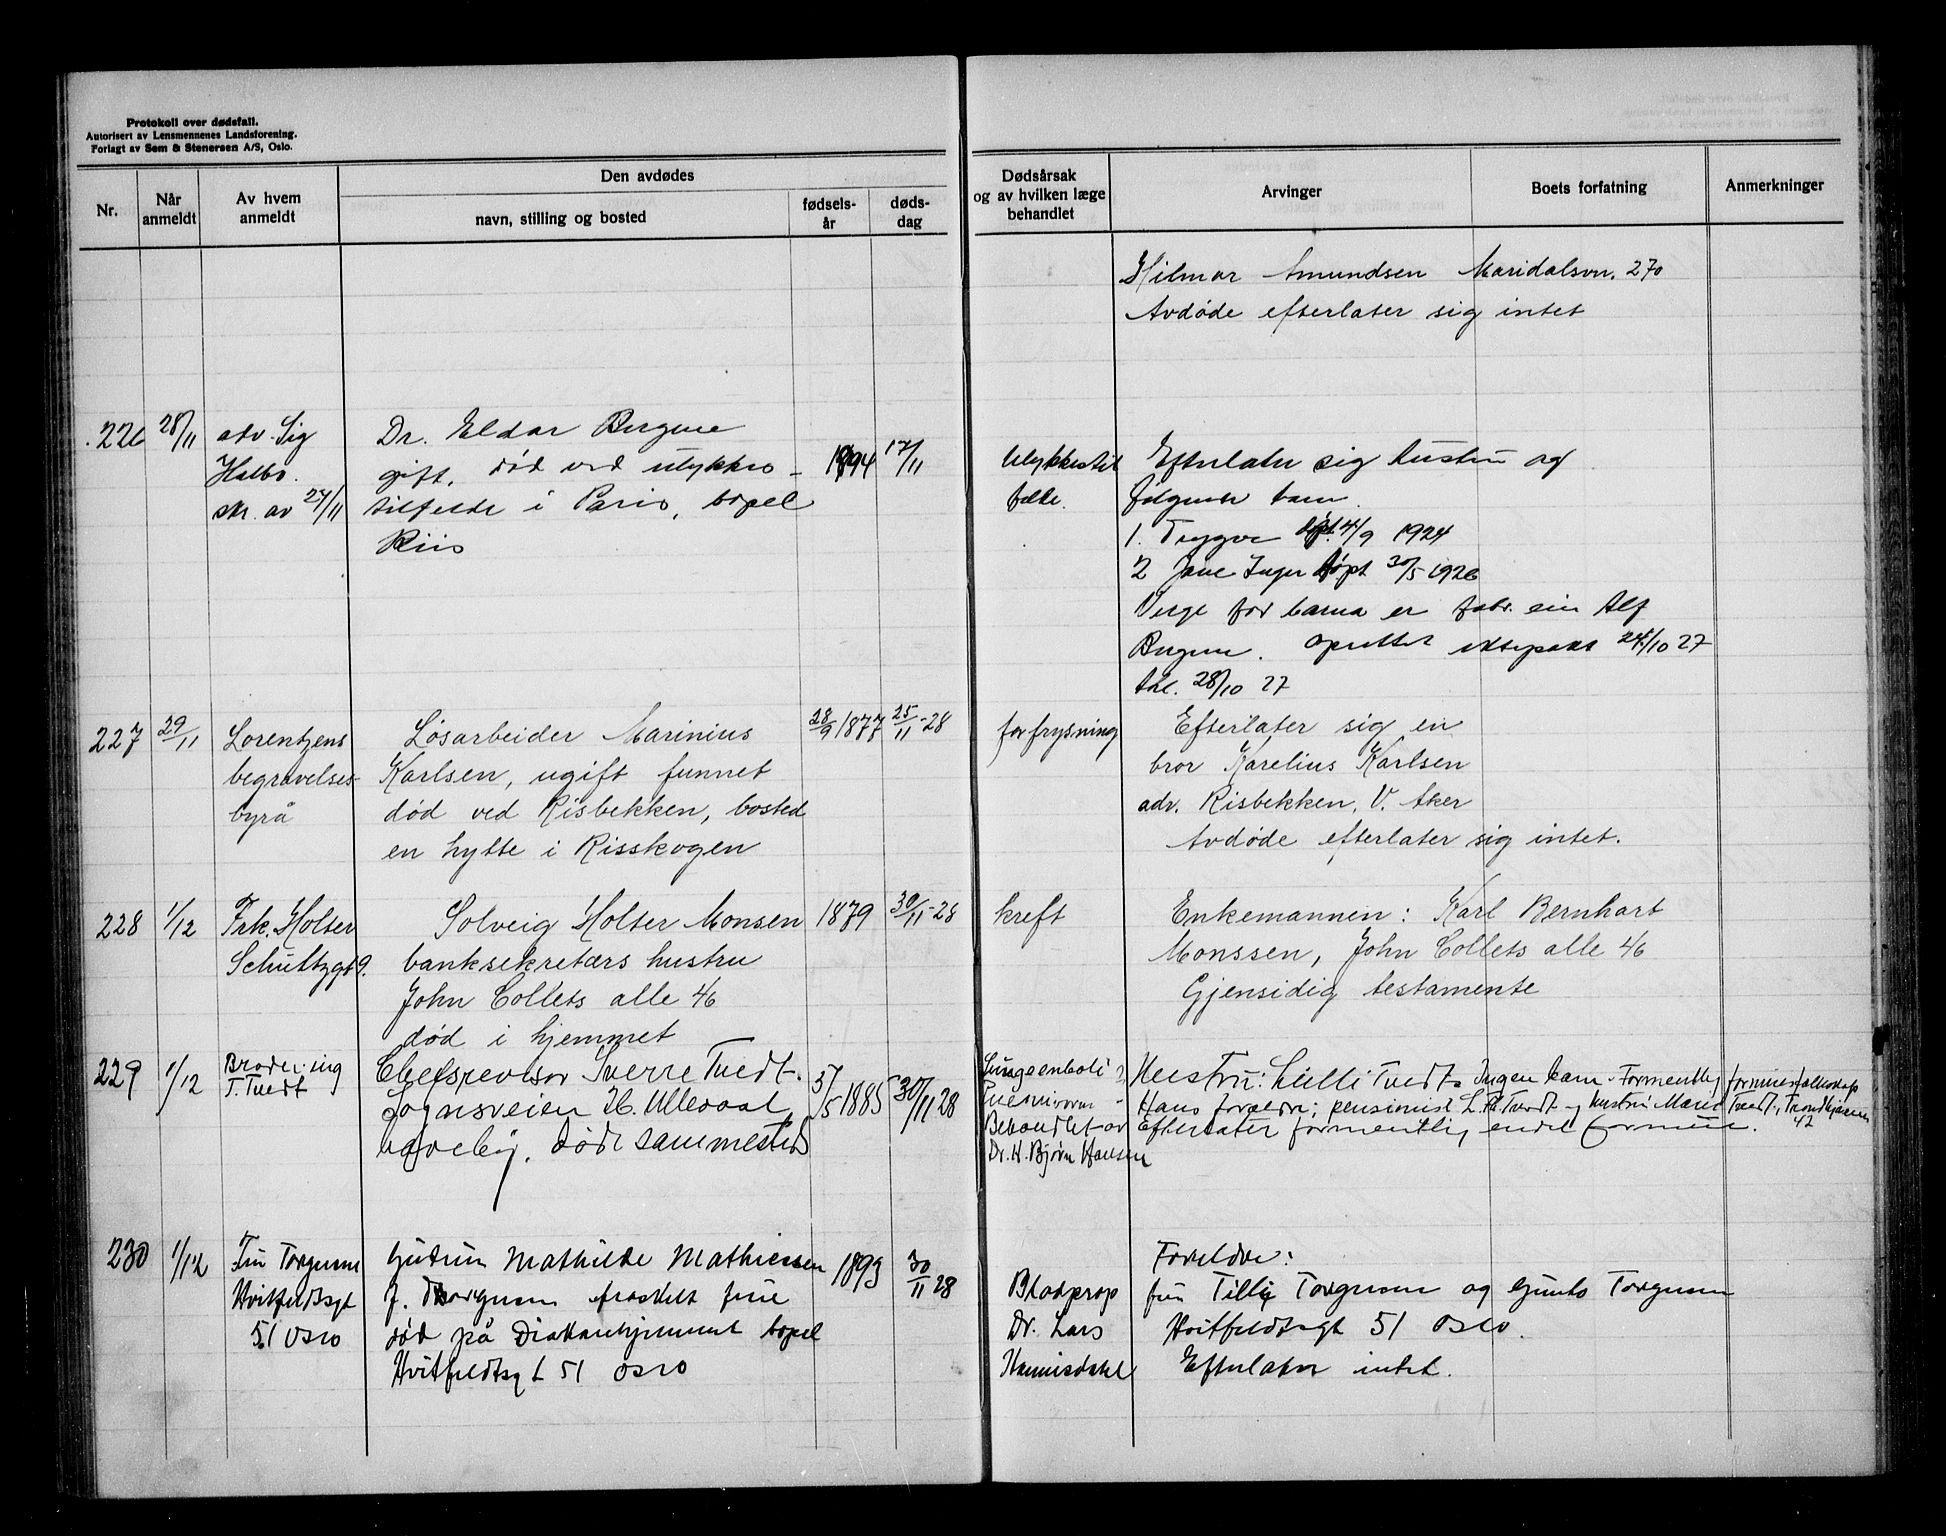 Protokoll over dødsfall.
Autorisert av Lensmennenes Landsforening.
Forlagt av Sem & Stenersen A/S, Oslo.
Nr.
Når
anmeldt
Av hvem
anmeldt
Den avdødes
navn, stilling og bosted
fødsels-
år
døds-
dag
Dødsårsak
og av hvilken læge
behandlet
Arvinger
Boets forfatning
Anmerkninger
Hilmar Amundsen Maridalsvn. 270
Avdøde efterlater sig intet
226
28/11
adv. Sig
Halbo.
skr. av 27/11
Dr. Eldar Bergene
gift, død ved ulykkes-
tilfelde i Paris, bopel
Riis
1894
17/11
Ulykkestil
felde.
Efterlater sig hustru og
følgende barn
1. Trygve døpt 4/9 1924
2 Jane Inger døpt 30/5 1926
Verge for barna er fabr. eier Alf
Bergene. Oprettet ektepakt 24/10 27
thl. 28/10 27
227
29/11
Lorentzens
begravelses-
byrå
Løsarbeider Marinius
Karlsen, ugift funnet
død ved Risbekken, bosted
en hytte i Risskogen
28/9 1877
25/11-28
forfrysning
Efterlater sig en
bror Karelius Karlsen
adr. Risbekken, V. Aker
Avdøde efterlater sig intet.
228
1/12
Frk. Holter
Schultzgt 9.
Solveig Holter Monsen
banksekretærs hustru
John Collets alle 46
død i hjemmet
1879
30/11-28
kreft
Enkemannen: Karl Bernhart
Monssen, John Collets alle 46
Gjensidig testamente
229
1/12
Broder: ing
T. Tvedt
Chefsrevisor Sverre Tvedt.
Sognsveien 26. Ullevaal
haveby, død sammesteds
3/5 1885
30/11 28
Lungeemboli
Behandlet av
Dr. H. Bjørn Hansen
Hustru: Lilli Tvedt Ingen barn. Formentlig formuesfellesskap
Hans foreldre; pensionist L. P. Tvedt og hustru Marie Tvedt, Trondhjemsvn
42
Efterlater formentlig endel formue.
230
1/12
Fru Torgersen
Hvitfeldtsgt
51 Oslo
Gudrun Mathilde Mathiesen
f. Thorgersen fraskilt frue
død på Diakonhjemmet bopel
Hvitfeldtsgt 51 Oslo
1893
30/11 28
Blodprop
Dr. Lars
Hannisdahl
Foreldre:
fru Tilly Torgersen og Torgersen
Hvitfeldtsgt 51 Oslo.
Efterlater intet.